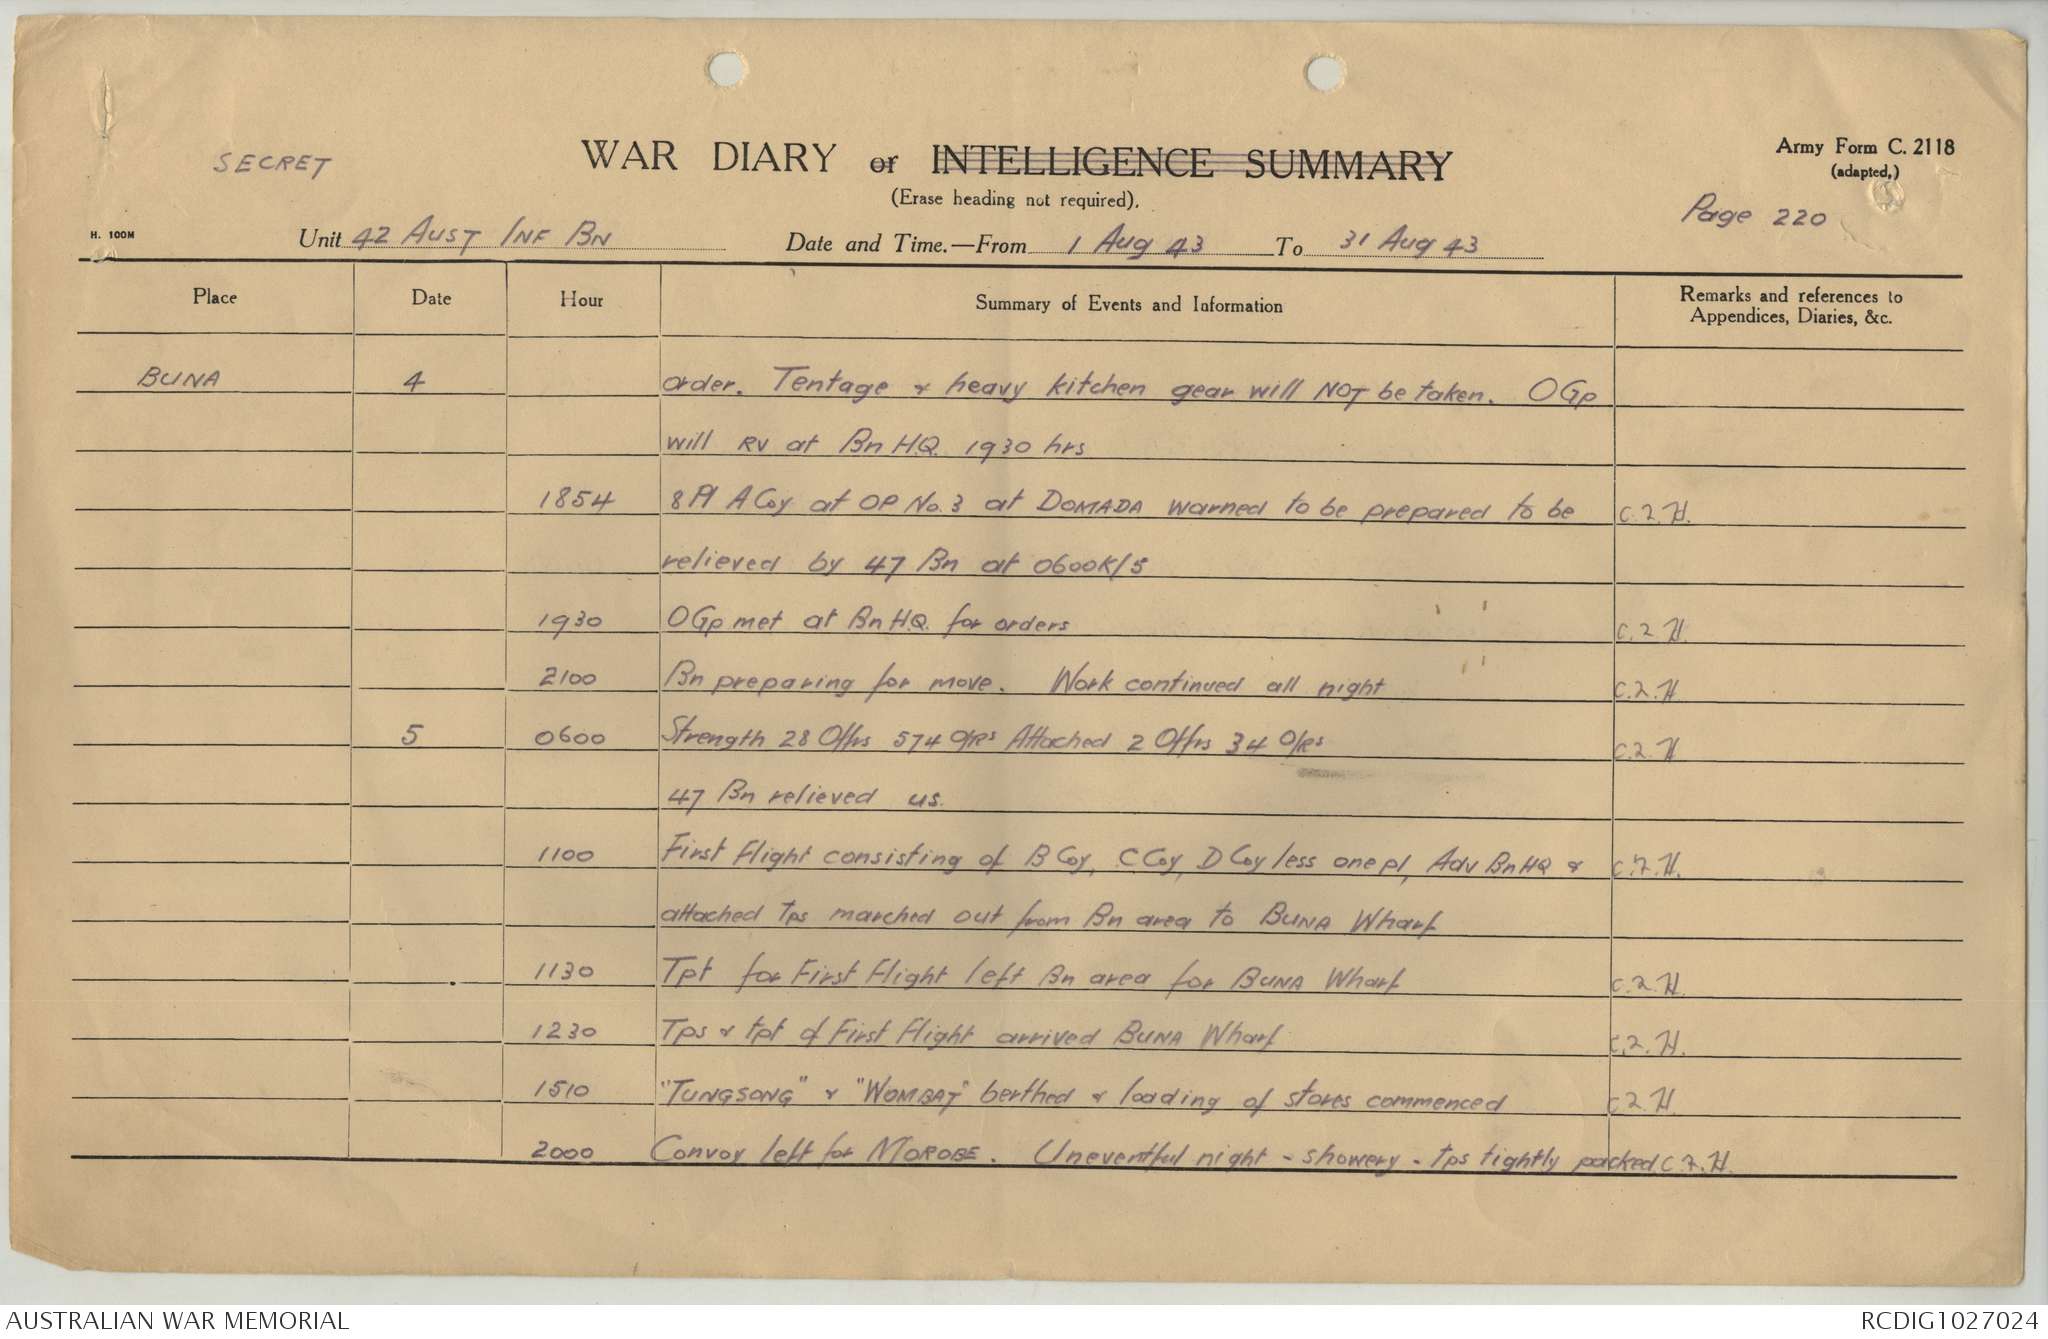 SECRET
WAR DIARY or INTELLIGENCE SUMMARY
(Erase heading not required).
Army Form C. 2118
(adapted,)
Page 220
H. 100M
Unit 42 AUST INF BN Date and Time.—From 1 Aug 43 To 31 Aug 43
Place Date Hour Summary of Events and Information Remarks and references to
Appendices, Diaries, &c.
BUNA 4 order. Tentage & heavy kitchen gear will NOT be taken. O Gp
will RV at Bn H.Q. 1930 hrs
1854 8 Pl A Coy at OP No. 3 at DOMADA warned to be prepared to be C.2.H.
relieved by 47 Bn at 0600K/5
1930 O Gp met at Bn H.Q. for orders C.2.H.
2100 Bn preparing for move. Work continued all night C.2.H.
5 0600 Strength 28 Offrs 574 O/Rs Attached 2 Offrs 34 O/Rs C.2.H.
47 Bn relieved us.
1100 First Flight consisting of B Coy, C Coy, D Coy less one pl, Adv Bn HQ & C.2.H.
attached tps marched out from Bn area to BUNA Wharf
1130 Tpt for First Flight left Bn area for BUNA Wharf C.2.H.
1230 Tps & tpt of First Flight arrived BUNA Wharf C.2.H.
1510 "TUNGSONG" & "WOMBAT" berthed & loading of stores commenced C.2.H.
2000 Convoy left for MOROBE. Uneventful night - showery - tps tightly packed C.2.H.
AUSTRALIAN WAR MEMORIAL
RCDIG1027024